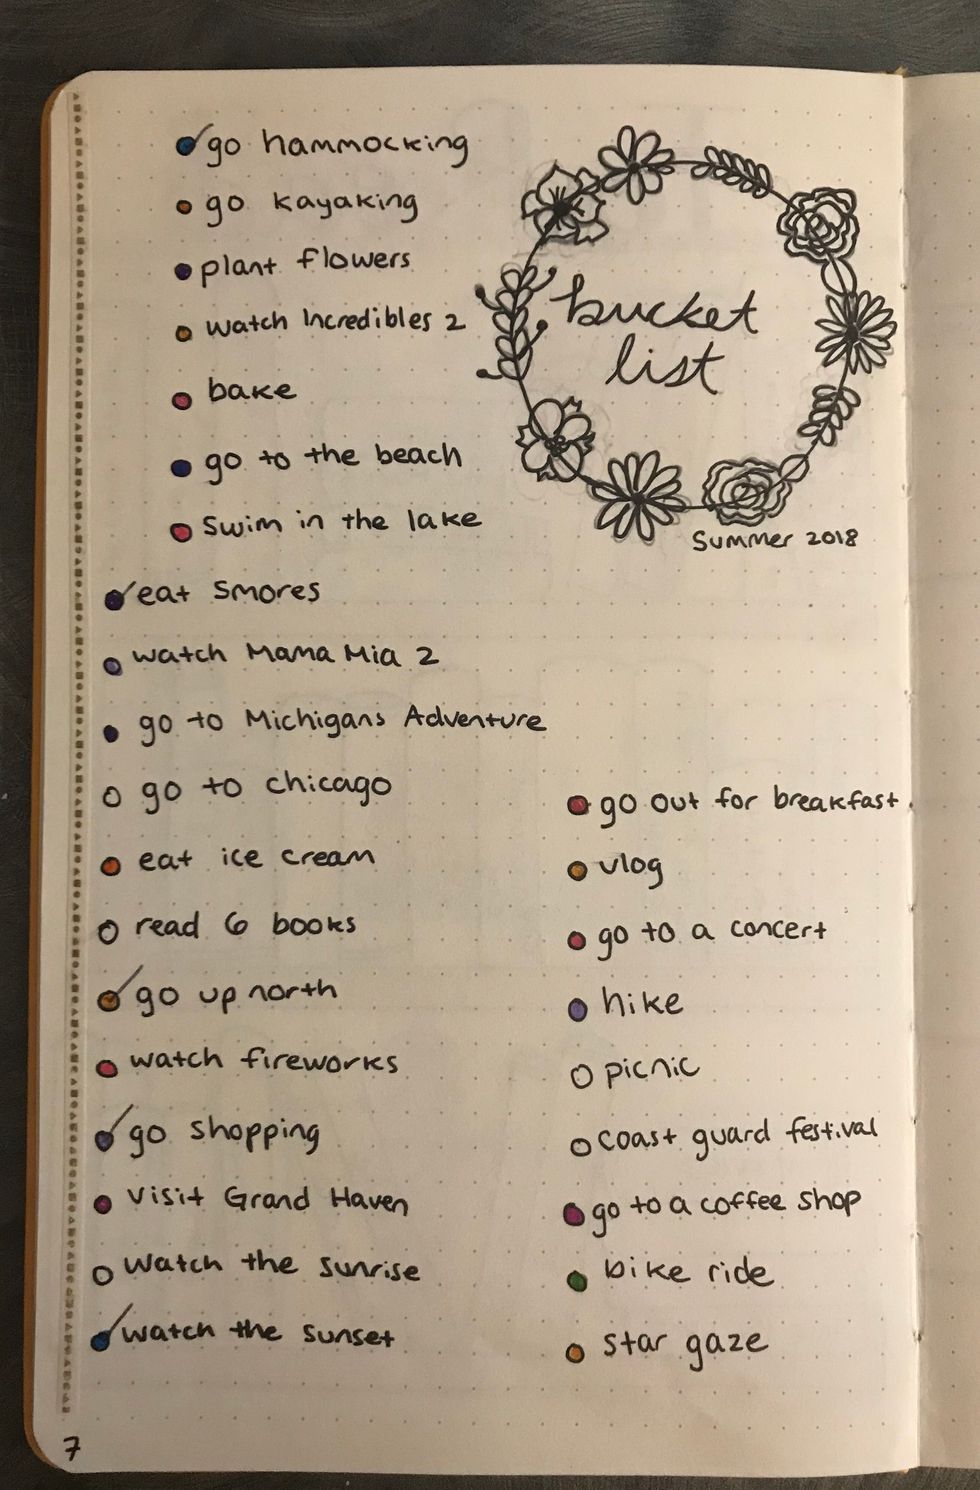 go hammocking
go kayaking
plant flowers
watch Incredibles 2
bake
go to the beach
swim in the lake
bucket
list
Summer 2018
eat smores
watch Mama Mia 2
go to Michigans Adventure
go to chicago
eat ice cream
read 6 books
go up north
watch fireworks
go shopping
visit Grand Haven
watch the sunrise
watch the sunset
go out for breakfast
vlog
go to a concert
hike
picnic
coast guard festival
go to a coffee shop
bike ride
star gaze
7